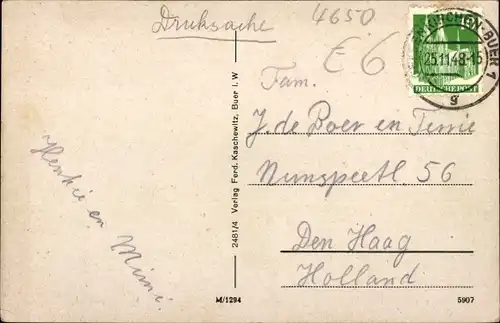 Drucksache
4650
E 6
KIRCHEN-BUER 1
25.11.48.-15
g
DEUTSCHE POST
Fam.
J. de Boer en Terrie
Nunspeetl 56
Den Haag
Holland
Henkie en
Mimi.
2481/4 Verlag Ferd. Kaschewitz, Buer i. W
M/1294
5907